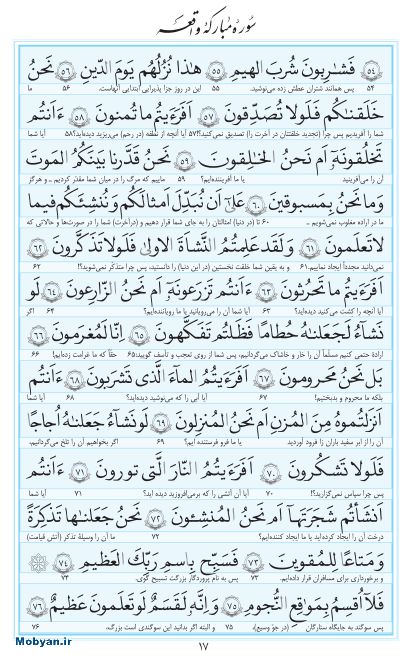 سورهٔ مبارکهٔ واقعه
﴿۵۴﴾ فَشَارِبُونَ شُرْبَ الْهِيمِ ﴿۵۵﴾ هٰذَا نُزُلُهُمْ يَوْمَ الدِّينِ ﴿۵۶﴾ نَحْنُ
۵۴ پس همانند شتران عطش زده می‌نوشید. ۵۵ این در روز جزا پذیرایی ابتدایی آنهاست. ۵۶ ما
خَلَقْنَاكُمْ فَلَوْلَا تُصَدِّقُونَ ﴿۵۷﴾ اَفَرَاَيْتُمْ مَا تُمْنُونَ ﴿۵۸﴾ ءَاَنْتُمْ
شما را آفریدیم پس چرا (تجدید خلقتتان در آخرت را) تصدیق نمی‌کنید؟! ۵۷ آیا آنچه از نطفه (در رحم) می‌ریزید دیده‌اید؟ ۵۸ آیا شما
تَخْلُقُونَهُ اَمْ نَحْنُ الْخَالِقُونَ ﴿۵۹﴾ نَحْنُ قَدَّرْنَا بَيْنَكُمُ الْمَوْتَ
آن را می‌آفرینید یا ما آفریننده‌ایم؟ ۵۹ ماییم که مرگ را در میان شما مقدّر کردیم ـ و هرگز
وَمَا نَحْنُ بِمَسْبُوقِينَ ﴿۶۰﴾ عَلٰى اَنْ نُبَدِّلَ اَمْثَالَكُمْ وَنُنْشِئَكُمْ فِيمَا
ما در اراده مغلوب نمی‌شویم ـ ۶۰ تا (در این دنیا) امثالتان را به جای شما قرار دهیم و (درآخرت) شما را در صورت‌ها و حالاتی که
لَا تَعْلَمُونَ ﴿۶۱﴾ وَلَقَدْ عَلِمْتُمُ النَّشْاَةَ الْاُولٰى فَلَوْلَا تَذَكَّرُونَ ﴿۶۲﴾
نمی‌دانید مجدداً ایجاد نماییم. ۶۱ و به یقین شما خلقت نخستین (در این دنیا) را دانستید، پس چرا متذکر نمی‌شوید؟! ۶۲
اَفَرَاَيْتُمْ مَا تَحْرُثُونَ ﴿۶۳﴾ ءَاَنْتُمْ تَزْرَعُونَهُ اَمْ نَحْنُ الزَّارِعُونَ ﴿۶۴﴾ لَوْ
آیا آنچه را کشت می‌کنید دیده‌اید؟ ۶۳ آیا شما آن را می‌رویانید یا ما رویاننده‌ایم؟ ۶۴ اگر
نَشَاءُ لَجَعَلْنَاهُ حُطَامًا فَظَلْتُمْ تَفَكَّهُونَ ﴿۶۵﴾ اِنَّا لَمُغْرَمُونَ ﴿۶۶﴾
اراده حتمی کنیم مسلماً آن را خار و خاشاک می‌گردانیم، پس شما از روی تعجب و تأسف گویید: ۶۵ حقا که ما غرامت زده‌ایم! ۶۶
بَلْ نَحْنُ مَحْرُومُونَ ﴿۶۷﴾ اَفَرَاَيْتُمُ الْمَاءَ الَّذِى تَشْرَبُونَ ﴿۶۸﴾ ءَاَنْتُمْ
بلکه ما محروم و بدبختیم! ۶۷ آیا آبی را که می‌نوشید دیده‌اید؟ ۶۸ آیا شما
اَنْزَلْتُمُوهُ مِنَ الْمُزْنِ اَمْ نَحْنُ الْمُنْزِلُونَ ﴿۶۹﴾ لَوْ نَشَاءُ جَعَلْنَاهُ اُجَاجًا
آن را از ابر سفید باران زا فرود آوردید یا ما فرو فرستنده ایم؟ ۶۹ اگر بخواهیم آن را تلخ می‌گردانیم،
فَلَوْلَا تَشْكُرُونَ ﴿۷۰﴾ اَفَرَاَيْتُمُ النَّارَ الَّتِى تُورُونَ ﴿۷۱﴾ ءَاَنْتُمْ
پس چرا سپاس نمی‌گزارید؟! ۷۰ آیا آن آتشی را که برمی‌افروزید دیده اید؟ ۷۱ آیا شما
اَنْشَاْتُمْ شَجَرَتَهَا اَمْ نَحْنُ الْمُنْشِئُونَ ﴿۷۲﴾ نَحْنُ جَعَلْنَاهَا تَذْكِرَةً
درخت آن را ایجاد کرده‌اید یا ما ایجاد کننده‌ایم؟ ۷۲ ما آن را وسیلهٔ تذکر (آتش قیامت)
وَمَتَاعًا لِلْمُقْوِينَ ﴿۷۳﴾ فَسَبِّحْ بِاسْمِ رَبِّكَ الْعَظِيمِ ﴿۷۴﴾
و برخورداری برای مسافران قرار داده‌ایم. ۷۳ پس به نام پروردگار بزرگت تسبیح گوی. ۷۴
فَلَا اُقْسِمُ بِمَوَاقِعِ النُّجُومِ ﴿۷۵﴾ وَاِنَّهُ لَقَسَمٌ لَوْ تَعْلَمُونَ عَظِيمٌ ﴿۷۶﴾
پس سوگند به جایگاه ستارگان (در جوّ وسیع)، ۷۵ و البته اگر بدانید این سوگندی است بزرگ، ۷۶
Mobyan.ir
۱۷